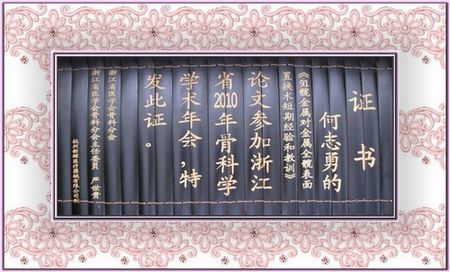 证书
何志勇的
《91髋金属对金属全髋表面
置换术短期经验和教训》
论文参加浙江
省2010年骨科学
学术年会，特
发此证。
浙江省医学会骨科分会
浙江省医学会骨科分会主任委员 严世贵
杭州医疗器械有限公司制